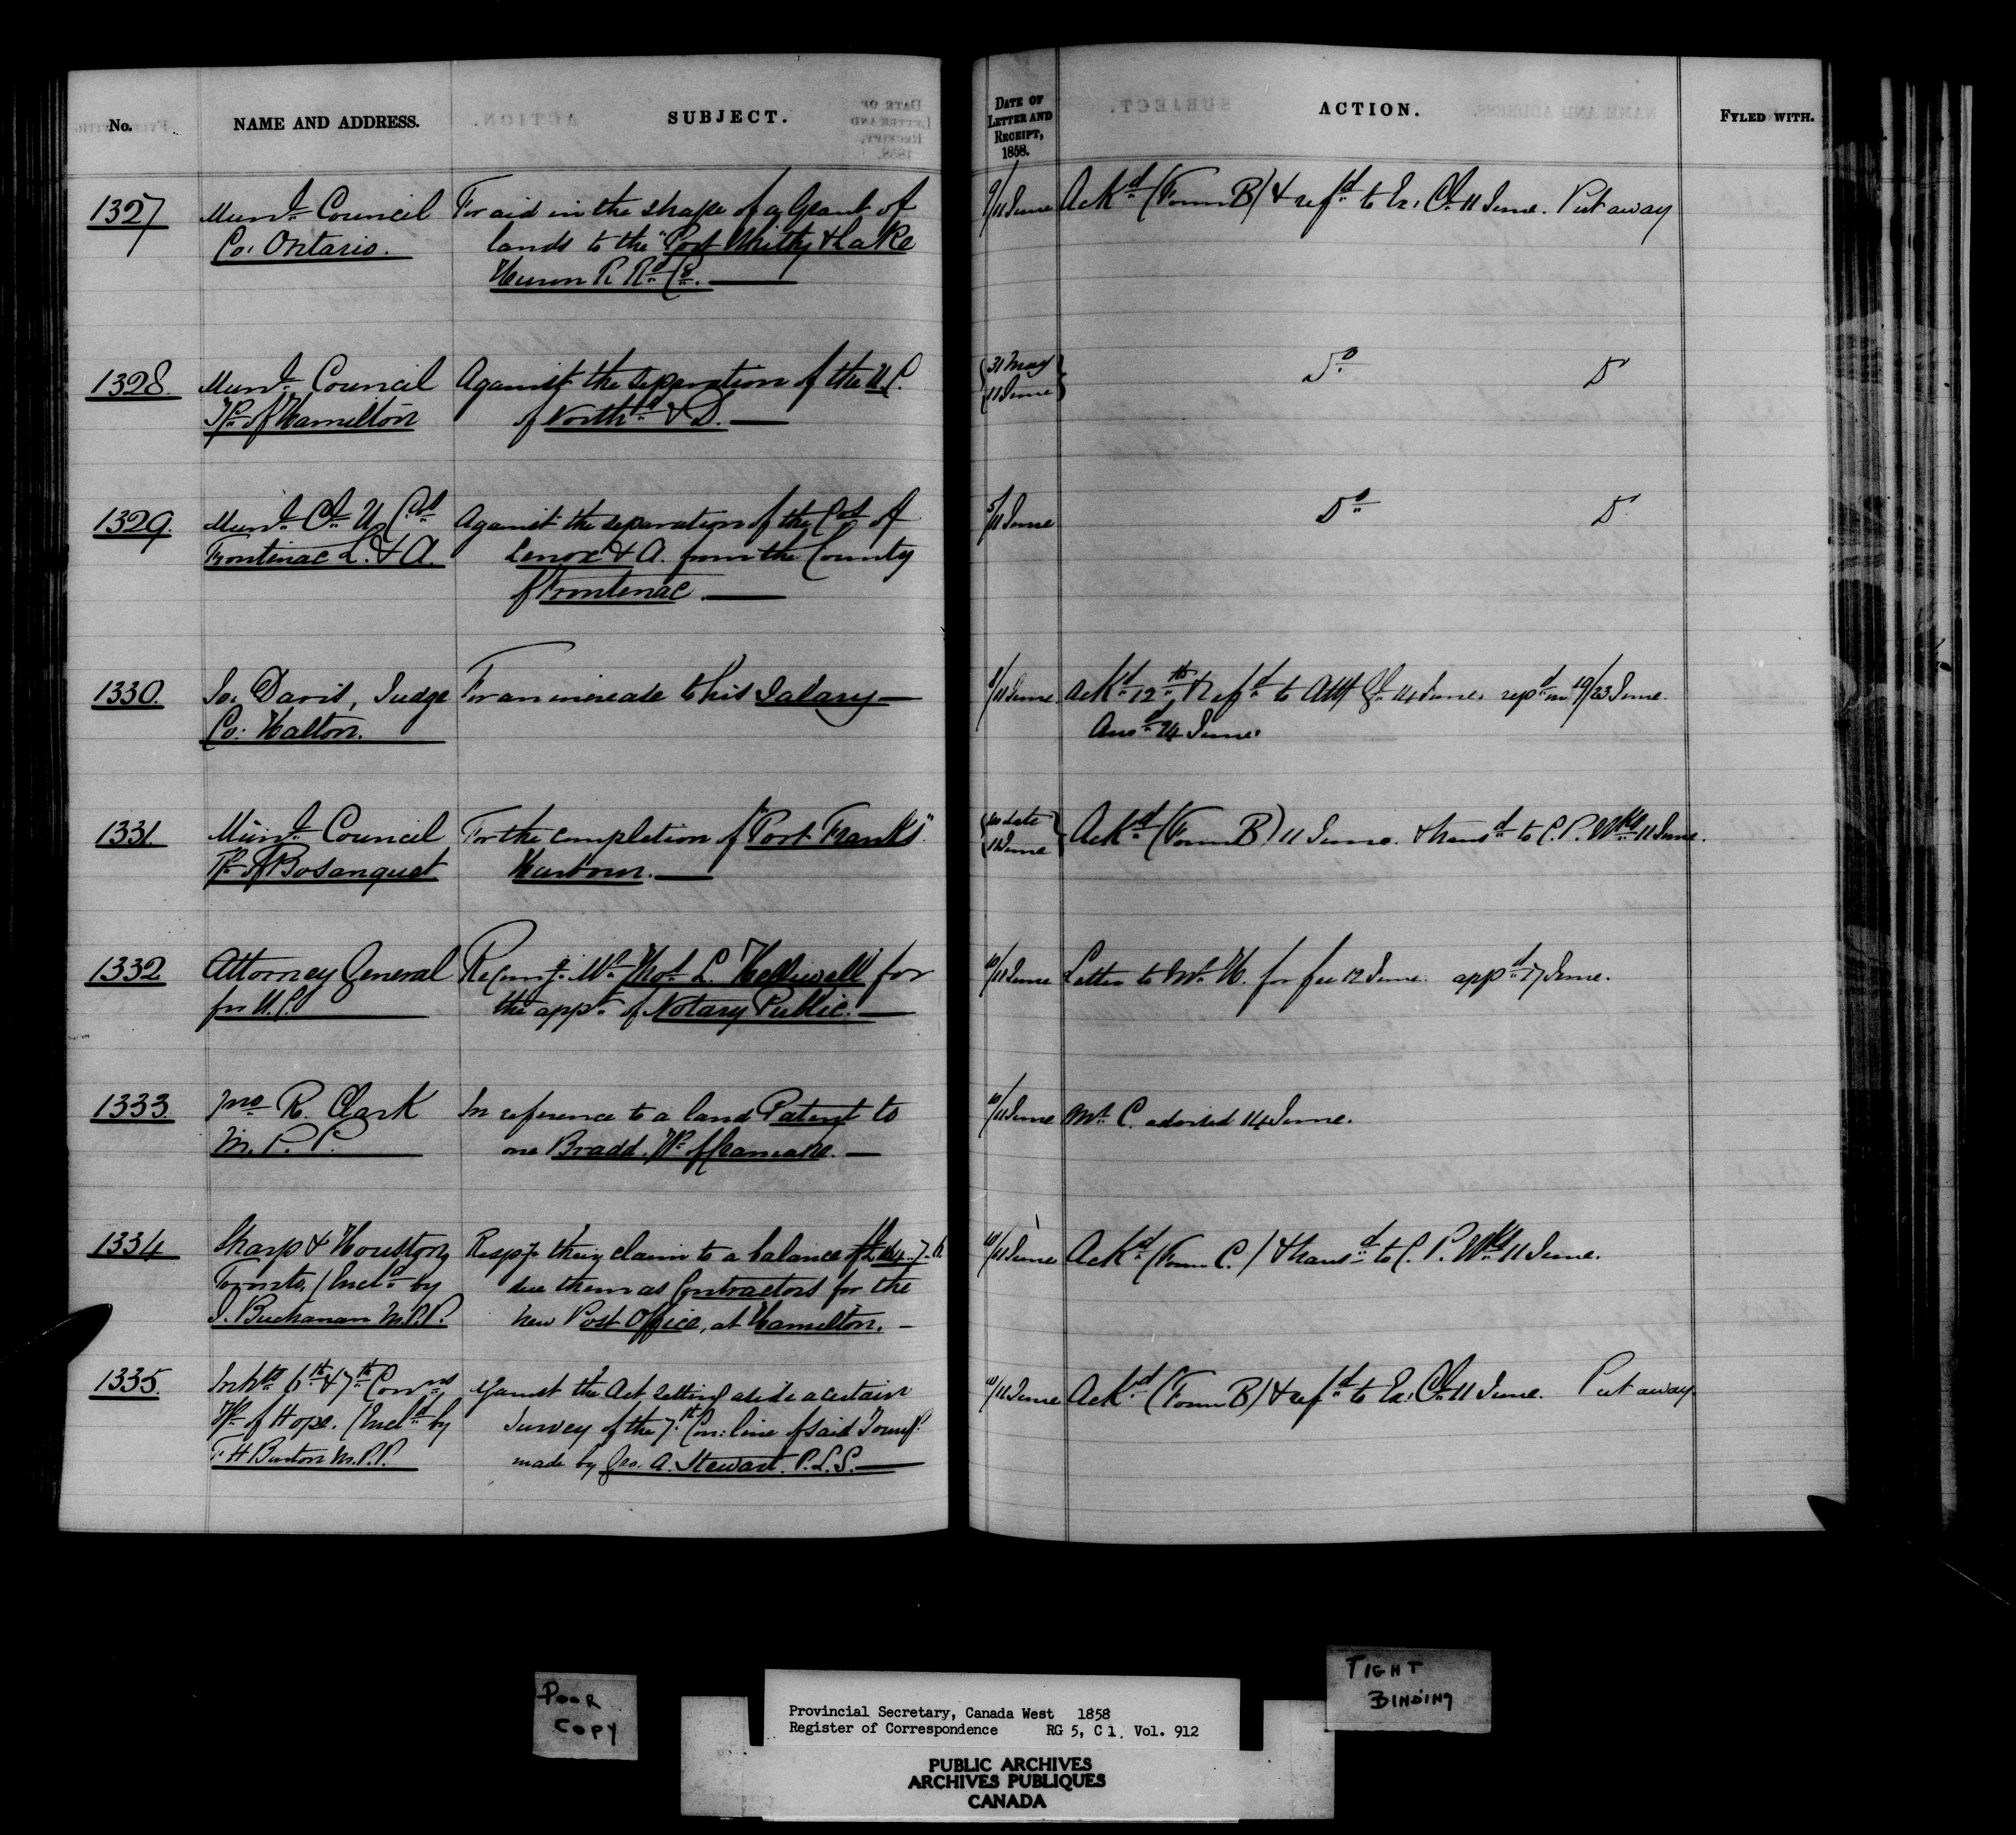 No.
NAME AND ADDRESS.
SUBJECT.
DATE OF
LETTER AND
RECEIPT,
1858.
ACTION.
FYLED WITH.
1327
Munl. Council
Co: Ontario.
For aid in the shape of a Grant of
lands to the "Port Whitby & Lake
Huron R. Rd. Co.
9/11 June
Ackd. (Form B) & refd. to Ex: Cl. 11 June. Put away
1328.
Munl. Council
Tp. of Hamilton
Against the separation of the U. C.
of Northd. & D.
31 May
11 June
Do.
Do
1329.
Munl. Cl. U. Cos.
Frontenac L. & A.
Against the separation of the Cos. of
Lenox & A. from the County
of Frontenac.
5/11 June
Do.
Do
1330.
Jos. Davis, Judge
Co: Halton.
For an increase to his Salary
8/11 June
Ackd. 12th. & refd. to Atty Gl. 14 June. repd. on 19/23 June.
Ansd. 24 June.
1331.
Munl. Council
Tp. of Bosanquet
For the completion of "Port Franks"
Harbour.
no date
11 June
Ackd. (Form B) 11 June. & transd. to C. P. Wks. 11 June.
1332
Attorney General
for U. C.
Recomg. Mr. Thos. L. Helliwell for
the appt. of Notary Public.
10/11 June
Letter to Mr. H. for fee 12 June. appd. 17 June.
1333.
Jno. R. Clark
M. P. P.
In reference to a land Patent to
one Bradd, Tp. of Kamaha.
10/11 June
Mr. C. advised 14 June.
1334
Sharp & Houston,
Toronto, (Encld. by
I. Buchanan M.P.P.
Respg. their claim to a balance of
due them as Contractors for the
new Post Office, at Hamilton.
10/11 June
Ackd. (Form C.) & transd. to C. P. Wks. 11 June.
1335.
Inhts. 6th. & 7th. Conns.
Tp. of Hope. (Encld. by
F H Burton M.P.P.
Against the Act setting aside a certain
Survey of the 7th. Con: line of said Townp.
made by Geo. A. Stewart. P.L.S.
10/11 June
Ackd. (Form B) & refd. to Ex: Cl. 11 June. Put away.
POOR
COPY
TIGHT
BINDING
Provincial Secretary, Canada West 1858
Register of Correspondence RG 5, C 1, Vol. 912
PUBLIC ARCHIVES
ARCHIVES PUBLIQUES
CANADA